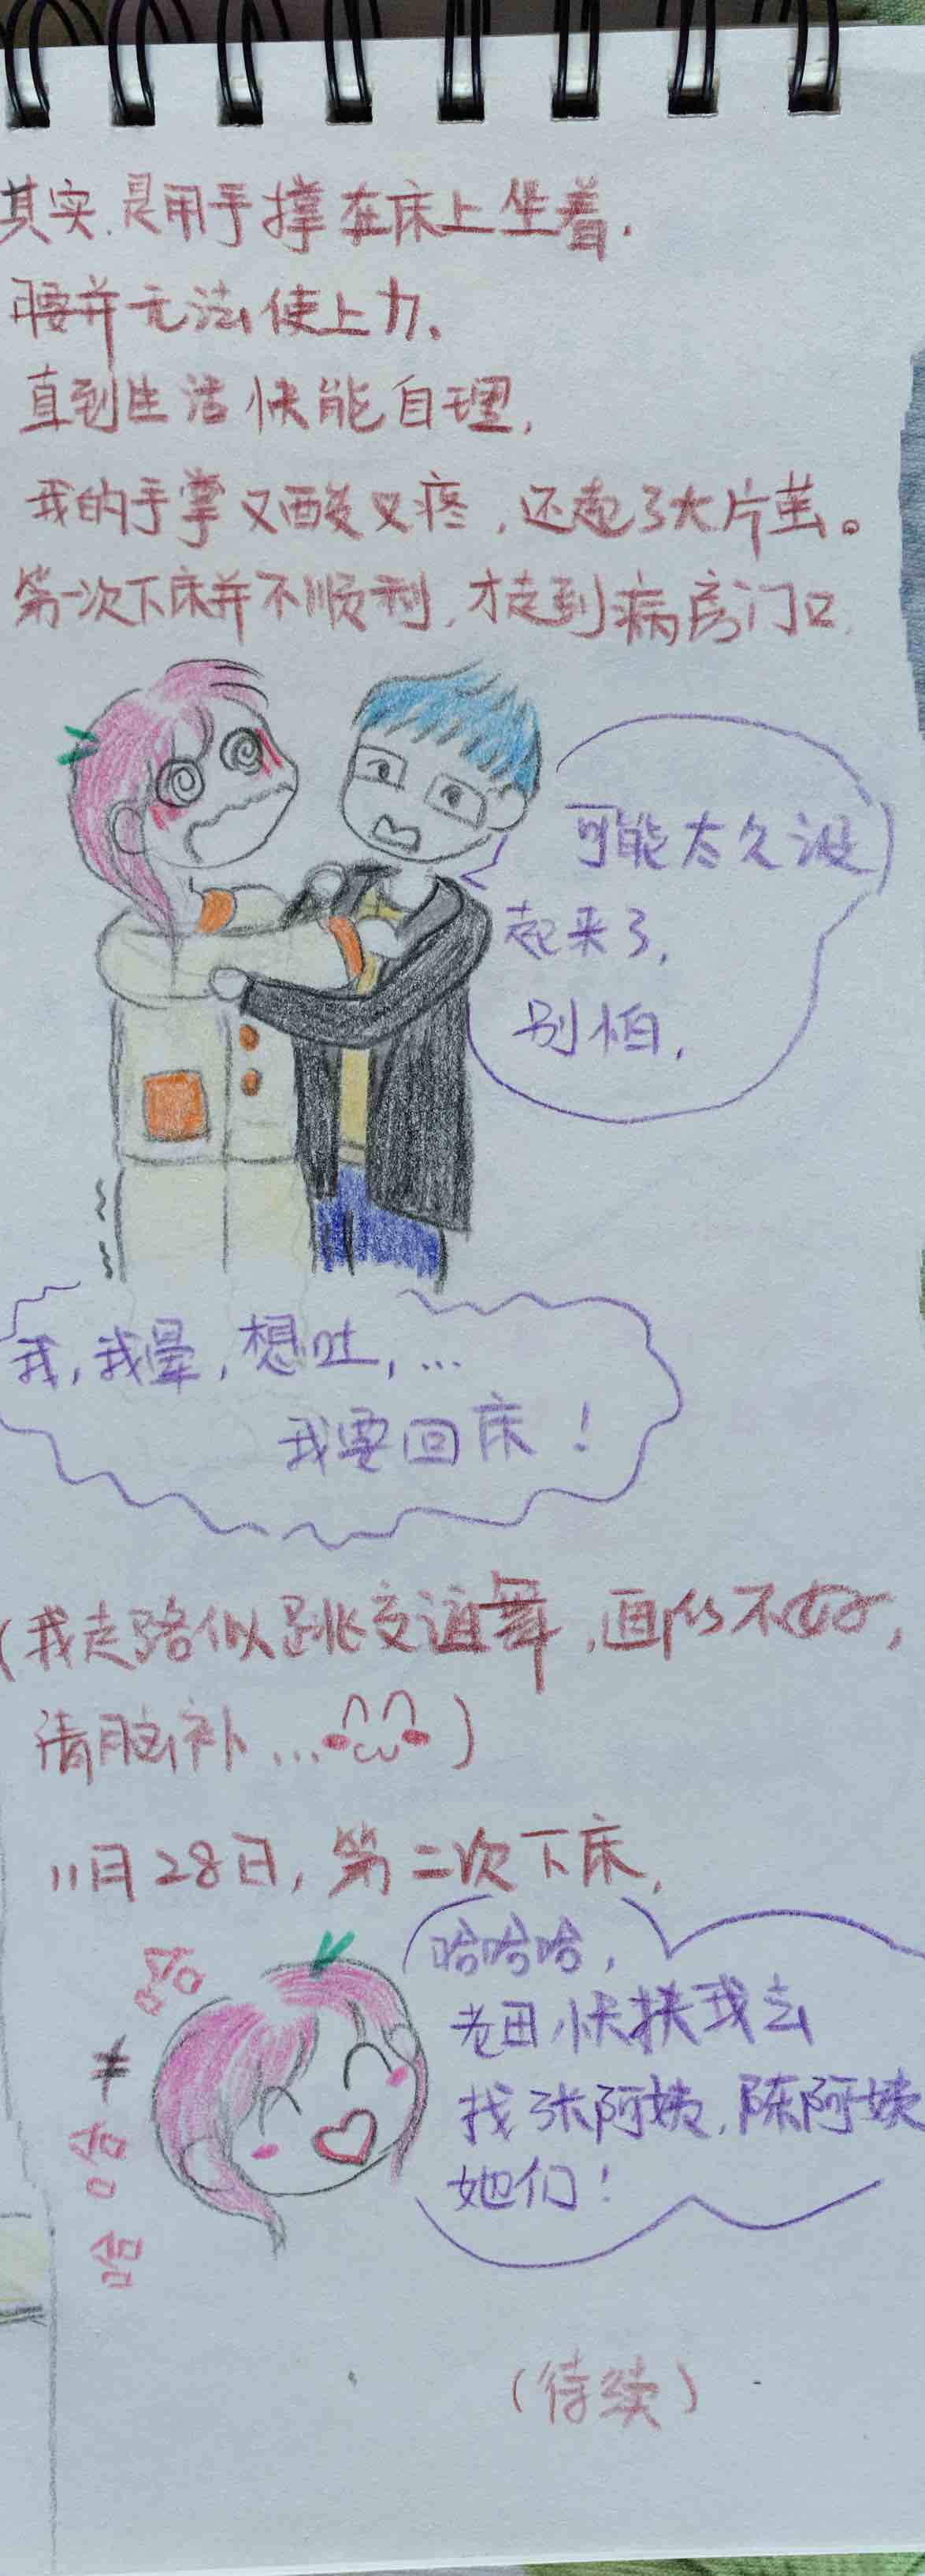 其实.是用手撑在床上坐着.
腰并无法使上力。
直到生活快能自理,
我的手掌又酸又疼,还起了大片茧。
第一次下床并不顺利,才走到病房门口.
可能太久没
起来了,
别怕,
我,我晕,想吐,...
我要回床!
(我走路似跳交谊舞,画的不好,
请脑补...)
11月28日,第二次下床,
哈哈哈,
老田,快扶我去
找张阿姨,陈阿姨
她们!
哈
哈
哈
(待续)